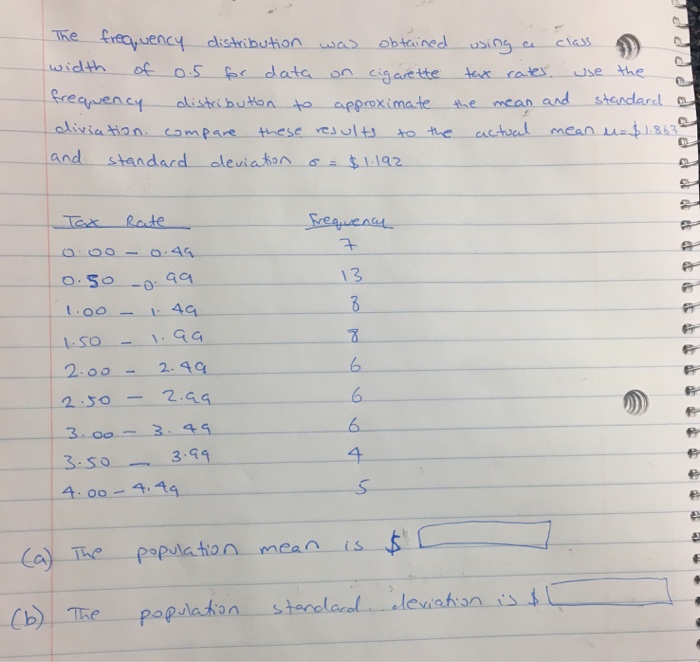 The frequency distribution was obtained using a class
width of 0.5 for data on cigarette tax rates. Use the
frequency distribution to approximate the mean and standard
diviation. compare these results to the actual mean μ=$1.867
and standard deviation σ = $1.192
Tax Rate Frequency
0.00 - 0.49 7
0.50 - 0.99 13
1.00 - 1.49 8
1.50 - 1.99 8
2.00 - 2.49 6
2.50 - 2.99 6
3.00 - 3.49 6
3.50 - 3.99 4
4.00 - 4.49 5
(a) The population mean is $
(b) The population standard deviation is $